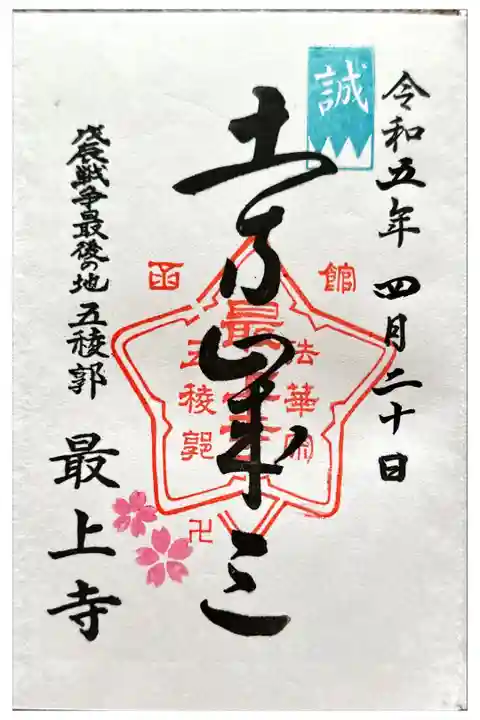 誠
令和五年 四月二十日
土方歳三
戊辰戦争最後の地 五稜郭
最上寺
函館
最上寺
法華宗
五稜郭
卍